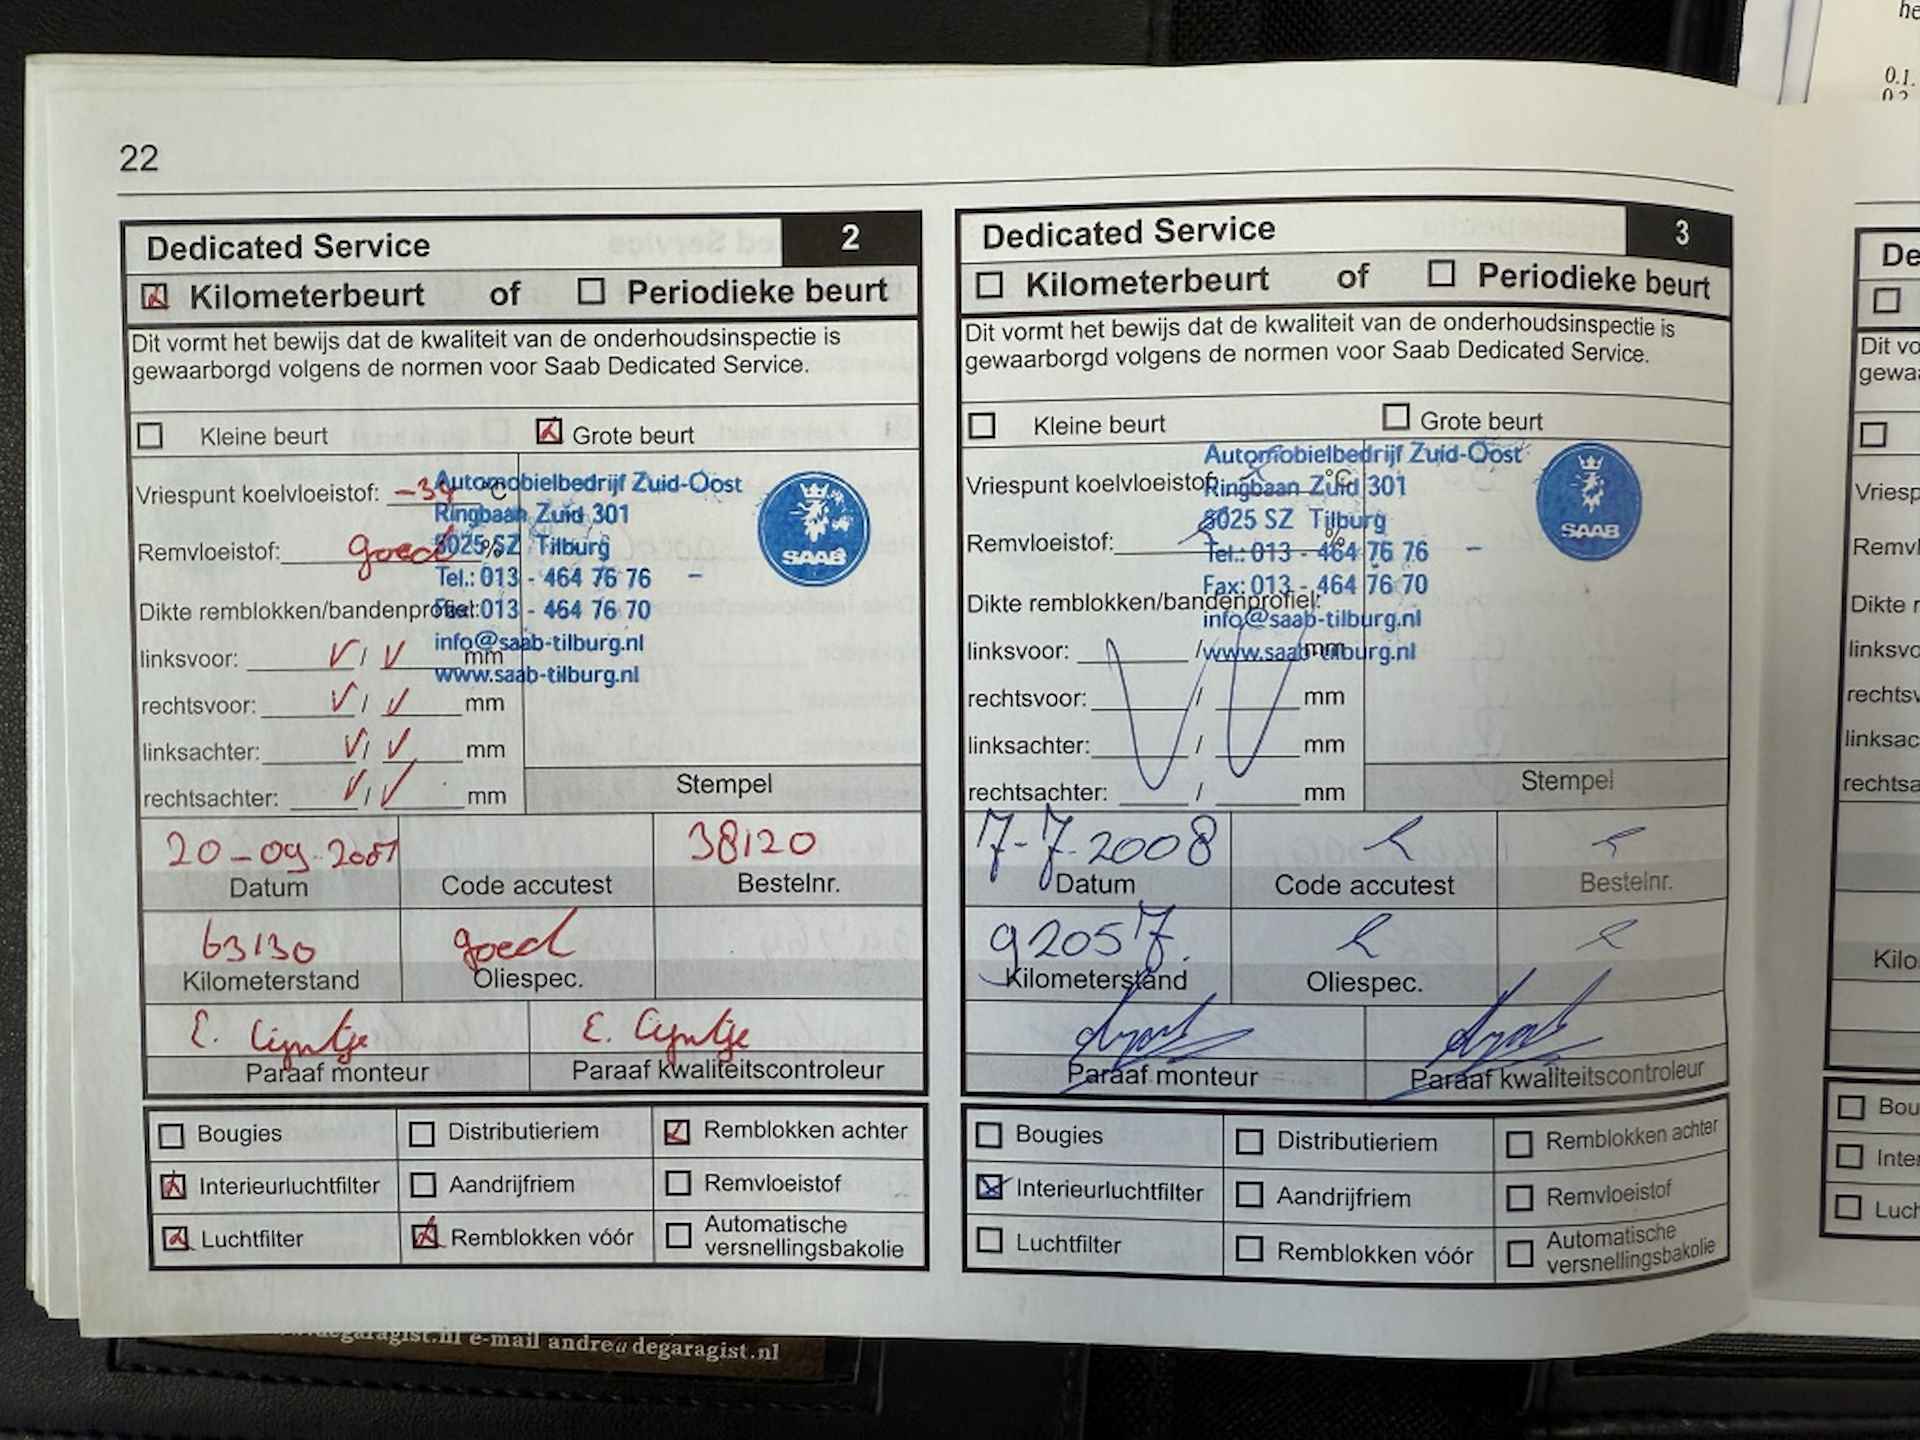 22
Dedicated Service 2
Kilometerbeurt of Periodieke beurt
Dit vormt het bewijs dat de kwaliteit van de onderhoudsinspectie is
gewaarborgd volgens de normen voor Saab Dedicated Service.
Kleine beurt Grote beurt
Vriespunt koelvloeistof: -34 °C
Remvloeistof: goed %
Dikte remblokken/bandenprofiel:
linksvoor: V / V mm
rechtsvoor: V / V mm
linksachter: V / V mm
rechtsachter: V / V mm
Automobielbedrijf Zuid-Oost
Ringbaan Zuid 301
5025 SZ Tilburg
Tel.: 013 - 464 76 76 -
Fax: 013 - 464 76 70
info@saab-tilburg.nl
www.saab-tilburg.nl
SAAB
Stempel
20-09-2007 38120
Datum Code accutest Bestelnr.
63130 goed
Kilometerstand Oliespec.
E. Cijntje E. Cijntje
Paraaf monteur Paraaf kwaliteitscontroleur
Bougies Distributieriem Remblokken achter
Interieurluchtfilter Aandrijfriem Remvloeistof
Luchtfilter Remblokken vóór Automatische
versnellingsbakolie
Dedicated Service 3
Kilometerbeurt of Periodieke beurt
Dit vormt het bewijs dat de kwaliteit van de onderhoudsinspectie is
gewaarborgd volgens de normen voor Saab Dedicated Service.
Kleine beurt Grote beurt
Vriespunt koelvloeistof: °C
Remvloeistof: %
Dikte remblokken/bandenprofiel:
linksvoor: / mm
rechtsvoor: / mm
linksachter: / mm
rechtsachter: / mm
Automobielbedrijf Zuid-Oost
Ringbaan Zuid 301
5025 SZ Tilburg
Tel.: 013 - 464 76 76 -
Fax: 013 - 464 76 70
info@saab-tilburg.nl
www.saab-tilburg.nl
SAAB
Stempel
7-7-2008
Datum Code accutest Bestelnr.
92057
Kilometerstand Oliespec.
Paraaf monteur Paraaf kwaliteitscontroleur
Bougies Distributieriem Remblokken achter
Interieurluchtfilter Aandrijfriem Remvloeistof
Luchtfilter Remblokken vóór Automatische
versnellingsbakolie
De
Dit vo
gewaa
Vriesp
Remvl
Dikte r
linksvo
rechtsv
linksac
rechtsa
Kilo
Bou
Inter
Luch
he
0.1.
degaragist.nl e-mail andre@degaragist.nl